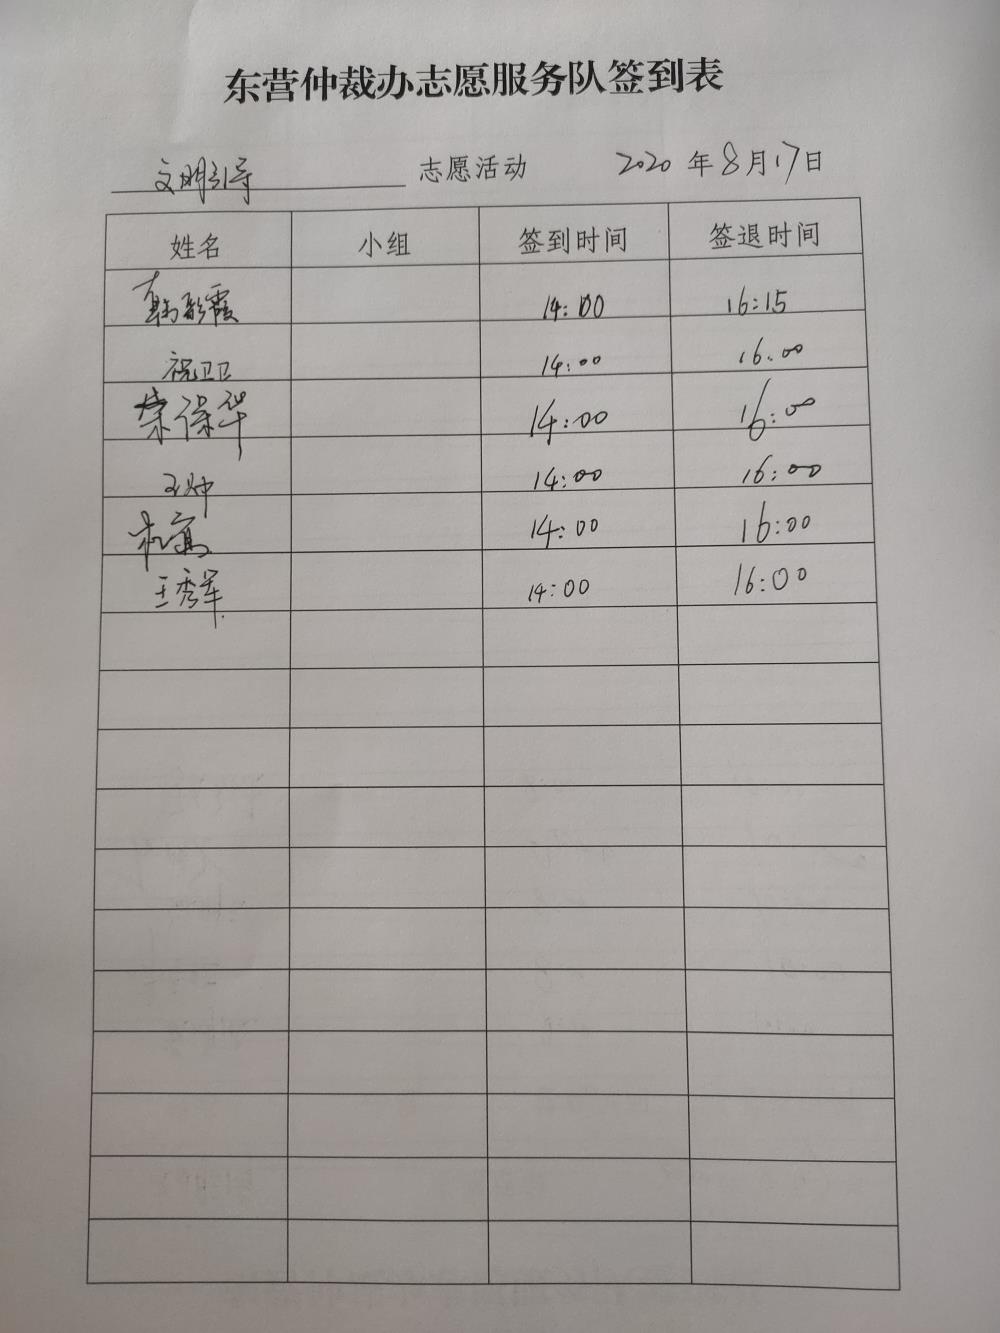 东营仲裁办志愿服务队签到表
文明引导 志愿活动 2020 年 8 月 17 日
姓名 小组 签到时间 签退时间
韩彩霞 14:00 16:15
祝卫卫 14:00 16:00
荣保华 14:00 16:00
王帅 14:00 16:00
14:00 16:00
王秀军 14:00 16:00